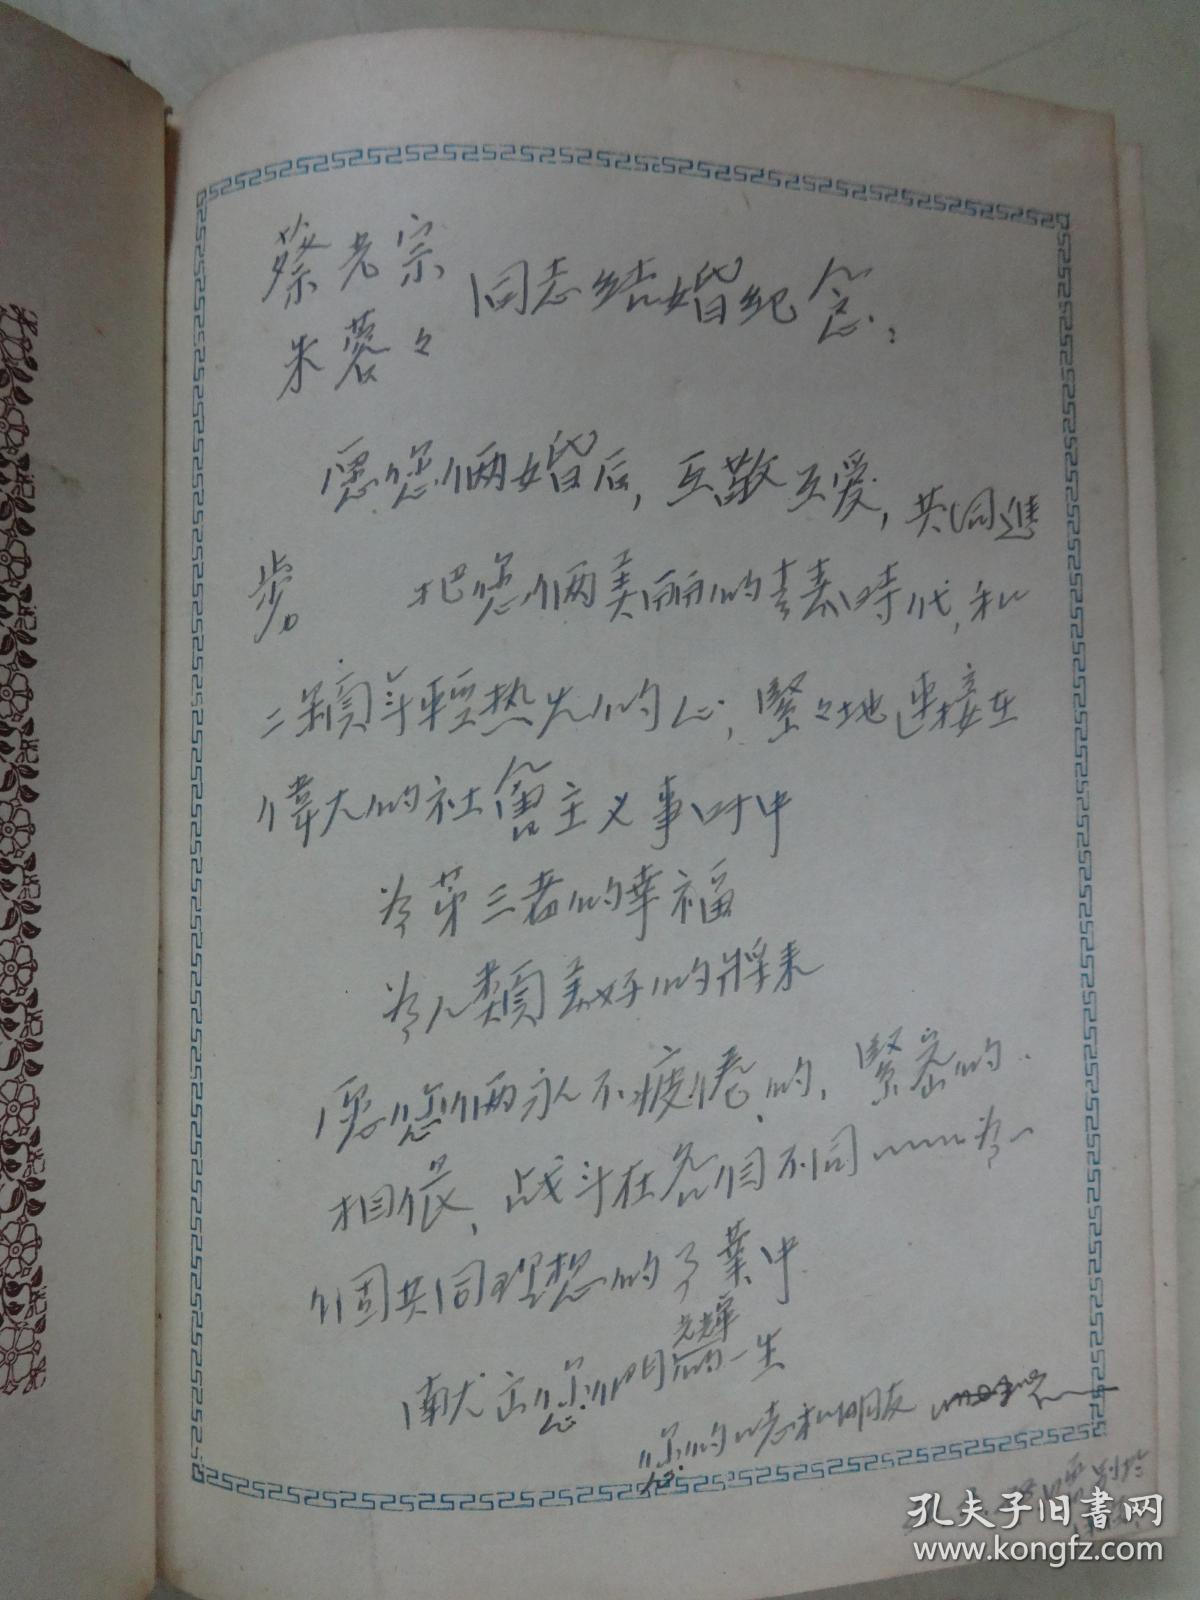 蔡光宗
朱蓉々 同志结婚纪念:
愿您俩婚后,互敬互爱,共同進
步 把您俩美丽的青春時代,和
二颗年輕热的心,緊々地連接在
偉大的社會主义事叶中
为第三者的幸福
为人類美好的將来
愿您俩永不疲倦的,緊密的
相偎,战斗在各個不同 为一
個共同理想的事業中
献出您们光輝的一生
您的同志和朋友
孔夫子旧书网
www.kongfz.com